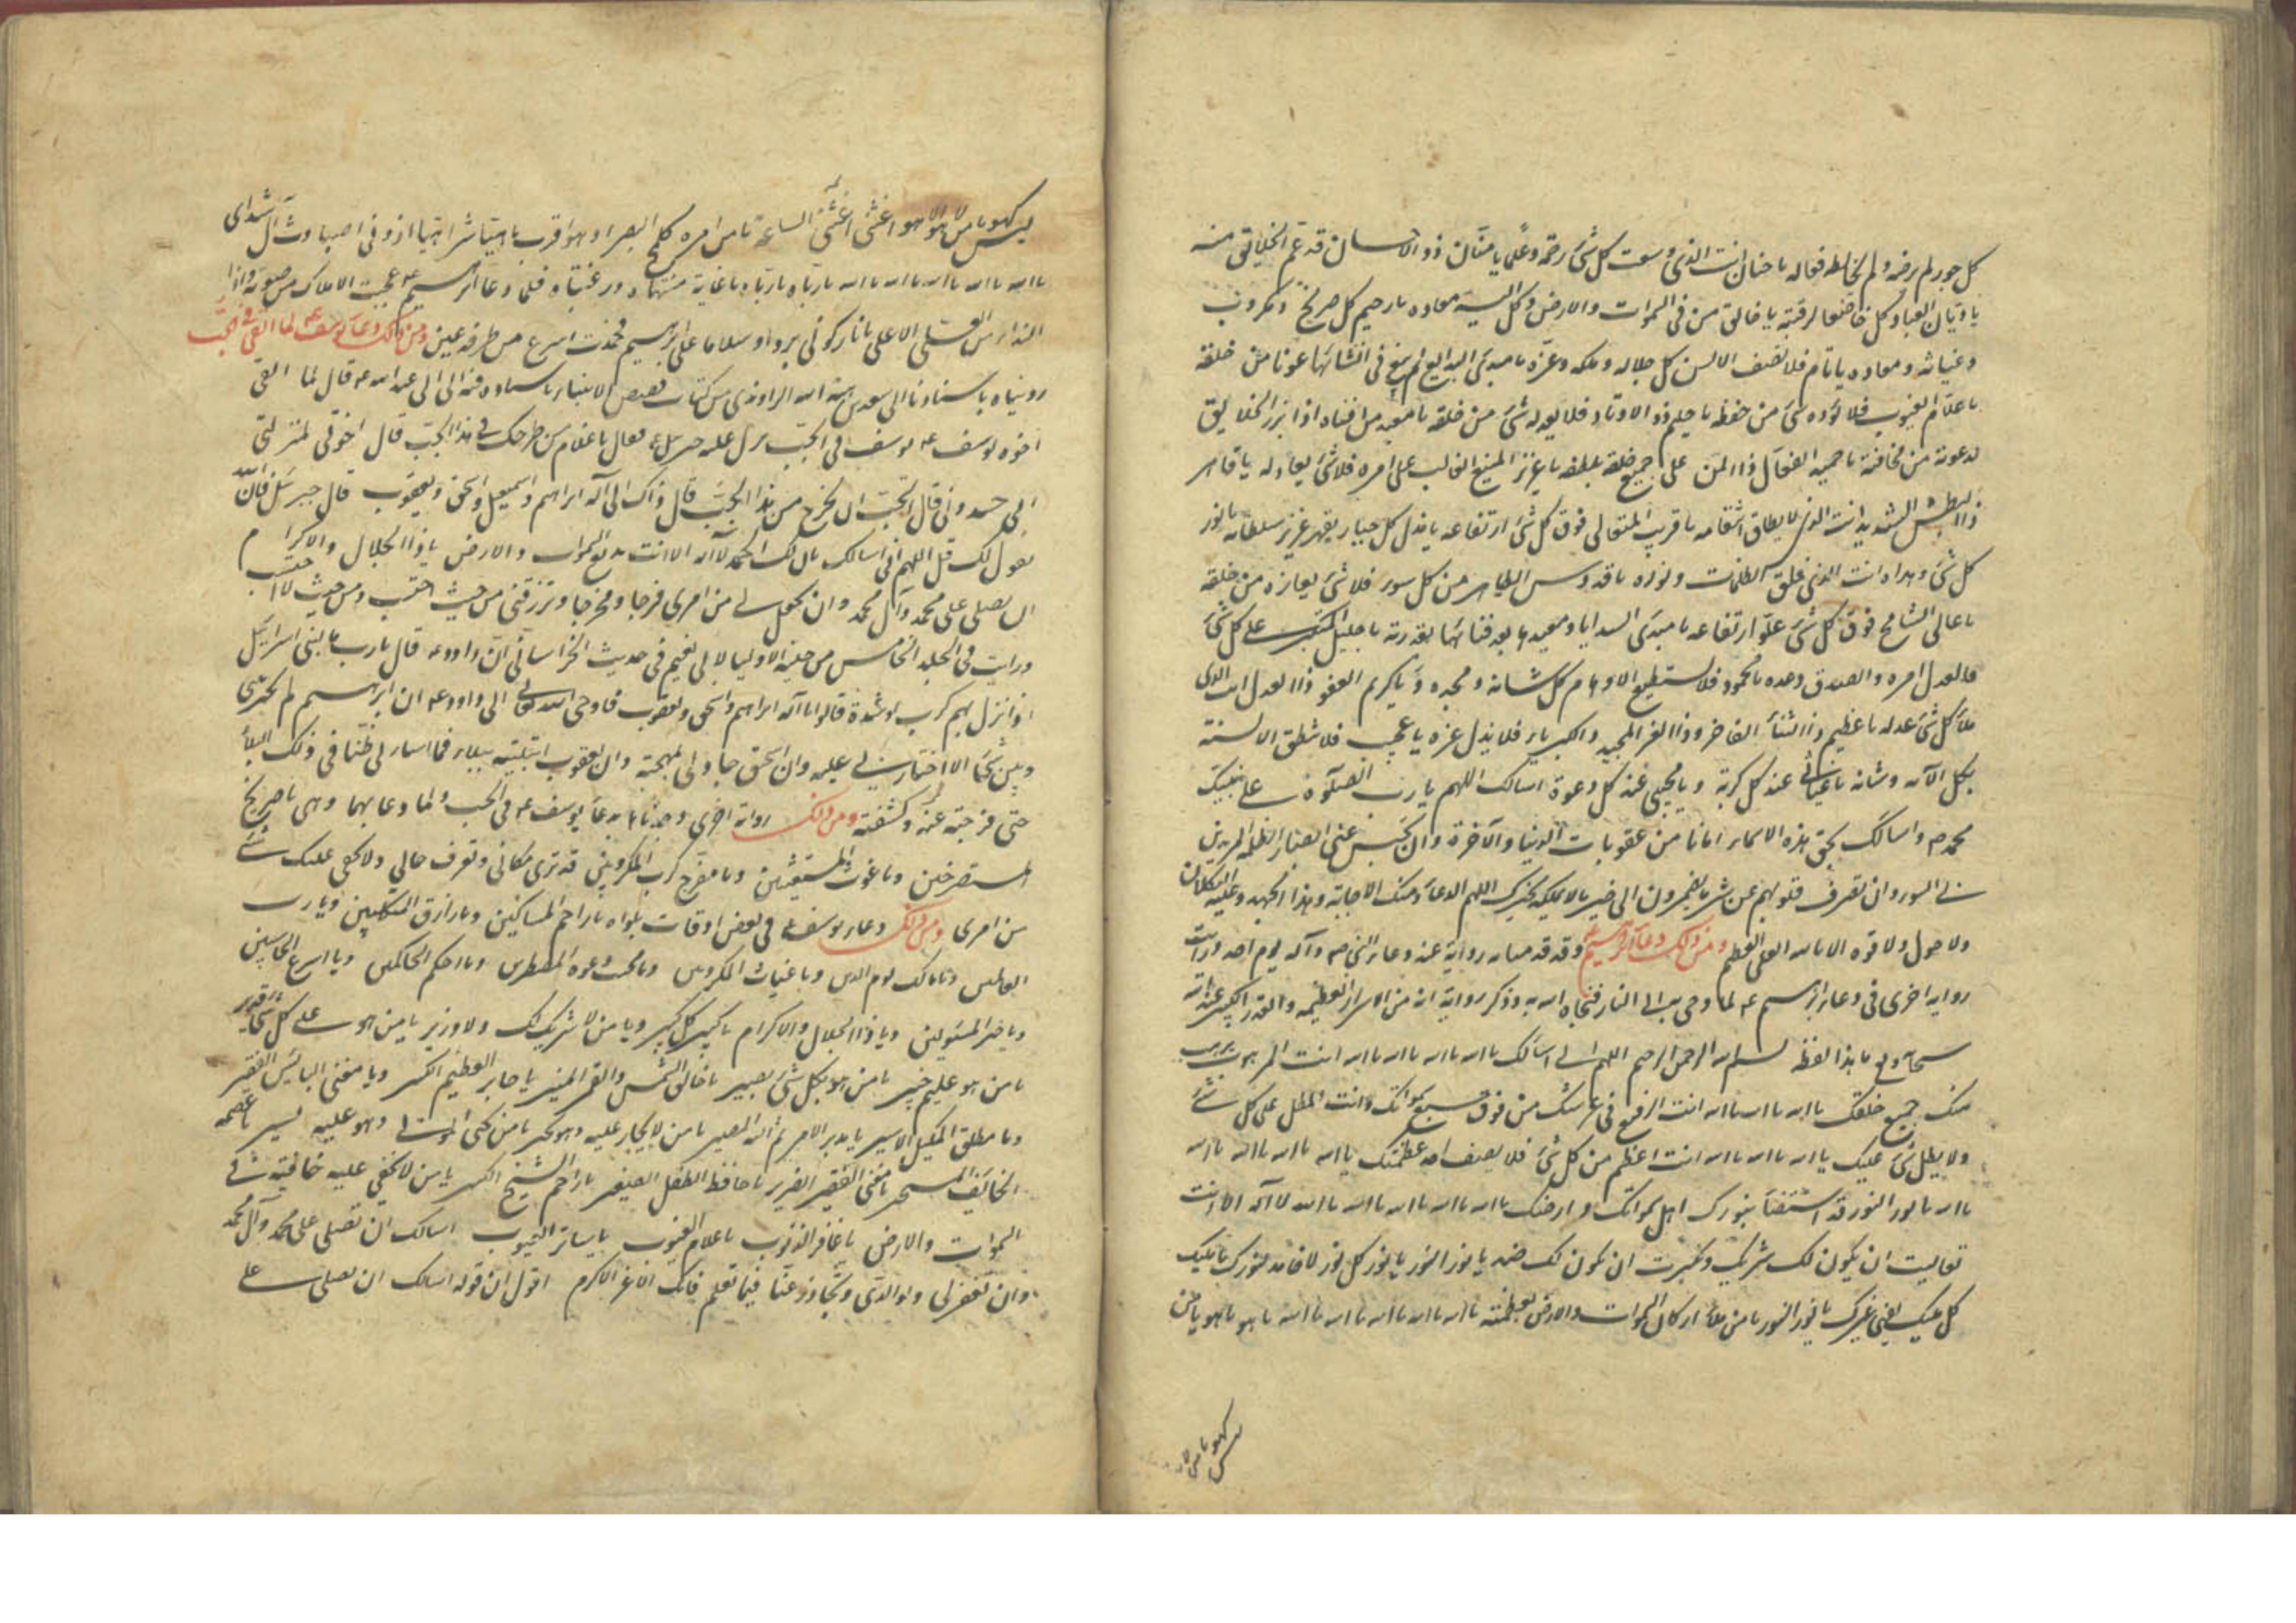 كل جور لم يرضه ولم يخالطه فعاله يا حنان انت الذى وسعت كل شئ رحمة وعلما يا منان ذو الاحسان قد عم الخلايق منه
يا ديان العباد كل خاضعا لرقبته يا خالق من فى السموات والارض وكل اليه معاده يا رحيم كل صريخ ومكروب
وغياثه ومعاده يا تام فلا تصف الالسن كل جلاله وملكه وعزه يا مبدئ البدايع لم يبغ فى انشائها عونا من خلقه
يا علام الغيوب فلا يؤده شئ من حفظه يا حليم ذو الاناة فلا يعدله شئ من خلقه يا معيد من افناه اذا برز الخلايق
لدعوته من مخافته يا حميد الفعال ذا المن على جميع خلقه بلطفه يا عزيز المنيع الغالب على امره فلا شئ يعادله يا قاهر
ذا البطش الشديد انت الذى لا يطاق انتقامه يا قريب المتعالى فوق كل شئ ارتفاعه يا مذل كل جبار بقهر عزيز سلطانه يا نور
كل شئ وهداه انت الذى فلق الظلمات ونوره يا قدوس الطاهر من كل سوء فلا شئ يعازه من خلقه
يا عالى الشامخ فوق كل شئ علو ارتفاعه يا مبدئ البدايا ومعيدها بعد فنائها بقدرته يا جليل المتكبر على كل شئ
فالعدل امره والصدق وعده يا محمود فلا تستطيع الاوهام كل شانه ومجده ويا كريم العفو ذا العدل انت الذى
ملأ كل شئ عدله يا عظيم ذا الثناء الفاخر وذا العز المجيد والكبرياء فلا يذل عزه يا عجيب فلا تنطق الالسنة
بكل الآئه وشانه يا غياثى عند كل كربة ويا مجيبى عند كل دعوة اسالك اللهم يا رب الصلوة على نبيك
محمد ص واسالك بحق هذه الاسماء امانا من عقوبات الدنيا والآخرة وان تحبس عنى ابصار الظلمة المريدين
لى السوء وان تصرف قلوبهم عن شر ما يضمرون الى خير ما لا يملكه غيرك اللهم الدعاء ومنك الاجابة وهذا الجهد وعليك التكلان
ولا حول ولا قوه الا بالله العلى العظيم ومن ذلك دعاء ابرهيم ع وقد قدمنا به رواية عنه وعاء النبى ص وآله يوم احد ورايت
رواية اخرى فى دعاء ابرهيم ع لما دحى به الى النار فنجاه الله به وذكر رواية انه من الاسرار العظيمه والقدر الكبير عند الله
سبحانه وتع ما هذا لفظه بسم الله الرحمن الرحيم اللهم انى اسالك يا الله يا الله يا الله يا الله انت المرهوب يرهب
منك جميع خلقك يا الله يا الله يا الله انت الرفيع فى عرشك من فوق سبع سمواتك وانت المظل على كل شئ
ولا يظل شئ عليك يا الله يا الله يا الله انت اعظم من كل شئ فلا يصف احد عظمتك يا الله يا الله يا الله يا الله
يا الله يا نور النور قد استضاء بنورك اهل سمواتك وارضك يا الله يا الله يا الله يا الله يا الله لا آله الا انت
تعاليت ان يكون لك شريك وتكبرت ان يكون لك ضد يا نور النور يا نور كل نور لا خامد لنورك يا مليك
كل مليك يفنى غيرك يا نور النور يا من ملأ اركان السموات والارض بعظمته يا الله يا الله يا الله يا الله يا الله يا هو يا هو يا من
ليس كهو يا من لا
ليس كهو يا من لا هو الا هو اغثنى اغثنى الساعة يا من امره كلمح البصر او هو اقرب باهيا شراهيا اذونى اصباوث آل شداى
يا الله يا الله يا الله يا الله يا الله يا رباه يا رباه يا رباه يا غاية منتهاه ورغبتاه فلما دعا ابرهيم ع عجبت الاملاك من صوته واذا
النداء من العلى الاعلى يا نار كونى بردا وسلاما على ابرهيم فخمدت اسرع من طرفه عين ومن ذلك دعاء يوسف ع لما القى فى الجب
رويناه باسنادنا الى سعيد بن هبة الله الراوندى من كتاب قصص الانبياء باسناده فيه الى ابى عبد الله ع قال لما القى
اخوه يوسف ع يوسف فى الجب نزل عليه جبرئيل ع فقال يا غلام من طرحك فى هذا الجب قال اخوتى لمنزلتى
من ابى حسدونى قال اتحب ان تخرج من هذا الجب قال ذاك الى آله ابراهيم واسمعيل واسحق ويعقوب قال جبرئيل فان الله
يقول لك قل اللهم انى اسالك بان لك الحمد لا آله الا انت بديع السموات والارض يا ذا الجلال والاكرام
ان تصلى على محمد وآل محمد وان تجعل لى من امرى فرجا ومخرجا وترزقنى من حيث احتسب ومن حيث لا احتسب
ورايت فى الجلد الخامس من حلية الاوليا لابى نعيم فى حديث الخراسانى ان داود ع قال يا رب ما لبنى اسرائيل
اذا نزل بهم كرب او شدة قالوا يا آله ابراهيم واسحق ويعقوب فاوحى الله تعالى الى داود ع ان ابرهيم لم يخير بينى
وبين شئ الا اختارنى عليه وان اسحق جاد لى بمهجته وان يعقوب ابتليته ببلاء فما اساء لى ظنا فى ذلك البلاء
حتى فرجته عنه وكشفته ومن ذلك رواية اخرى وجدناها بدعاء يوسف ع فى الجب ولما دعا بهما وهى يا صريخ
المستصرخين ويا غوث المستغيثين ويا مفرج كرب المكروبين قد ترى مكانى وتعرف حالى ولا يخفى عليك شئ
من امرى ومن ذلك دعاء يوسف ع فى بعض اوقات بلواه يا راحم المساكين ويا رازق المتكلمين ويا رب
العالمين ويا مالك يوم الدين ويا غياث المكروبين ويا مجيب دعوه المضطرين ويا احكم الحاكمين ويا اسرع الحاسبين
ويا خير المسئولين ويا ذا الجلال والاكرام يا كبير كل كبير ويا من لا شريك لك ولا وزير يا من هو على كل شئ قدير
يا من هو عليم خبير يا من هو بكل شئ بصير يا خالق الشمس والقمر المنير يا جابر العظيم الكسير ويا مغنى البائس الفقير
ويا مطلق المكبل الاسير يا مدبر الامر ثم اليه المصير يا من لا يجار عليه وهو يجير يا من يحيى الموتى وهو عليه يسير يا عصمه
الخائف المستجير يا مغنى الفقير الضرير يا حافظ الطفل الصغير يا راحم الشيخ الكبير يا من لا يخفى عليه خافية فى
السموات والارض يا غافر الذنوب يا علام الغيوب يا ساتر العيوب اسالك ان تصلى على محمد وآل محمد
وان تغفر لى ولوالدى وتجاوز عنا فيما تعلم فانك الاعز الاكرم اقول ان قوله اسالك ان تصلى على